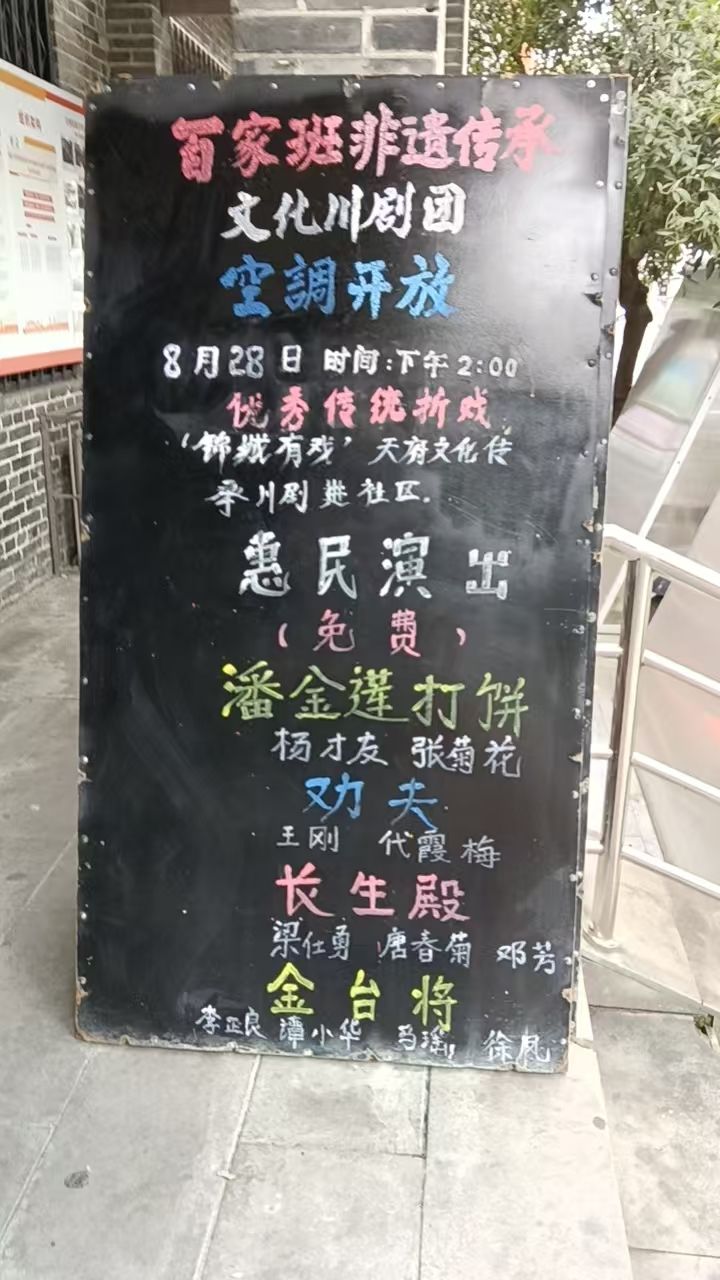 百家班非遗传承
文化川剧团
空調开放
8月28日 时间:下午2:00
优秀传统折戏
‘锦城有戏’天府文化传
承川剧进社区.
惠民演出
(免费)
潘金莲打饼
杨才友 张菊花
劝夫
王刚 代霞梅
长生殿
梁仕勇 唐春菊 邓芳
金台将
李正良 谭小华 马瑶 徐凤